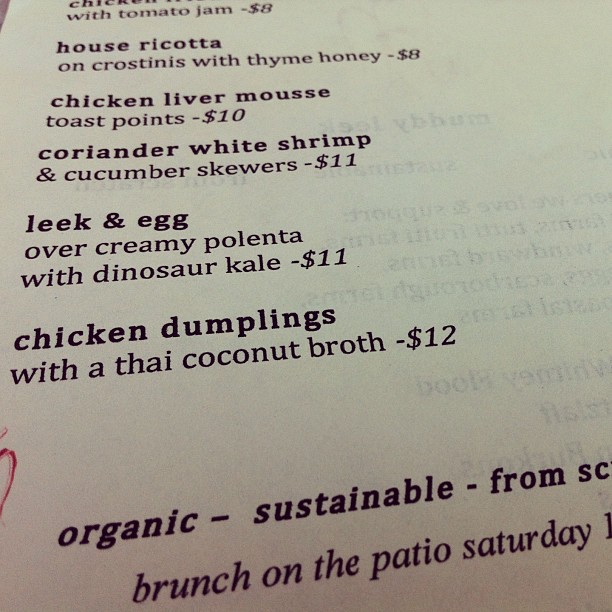 chicken
with tomato jam -$8
house ricotta
on crostinis with thyme honey -$8
chicken liver mousse
toast points -$10
coriander white shrimp
& cucumber skewers -$11
leek & egg
over creamy polenta
with dinosaur kale -$11
chicken dumplings
with a thai coconut broth -$12
organic – sustainable - from sc
brunch on the patio saturday 1